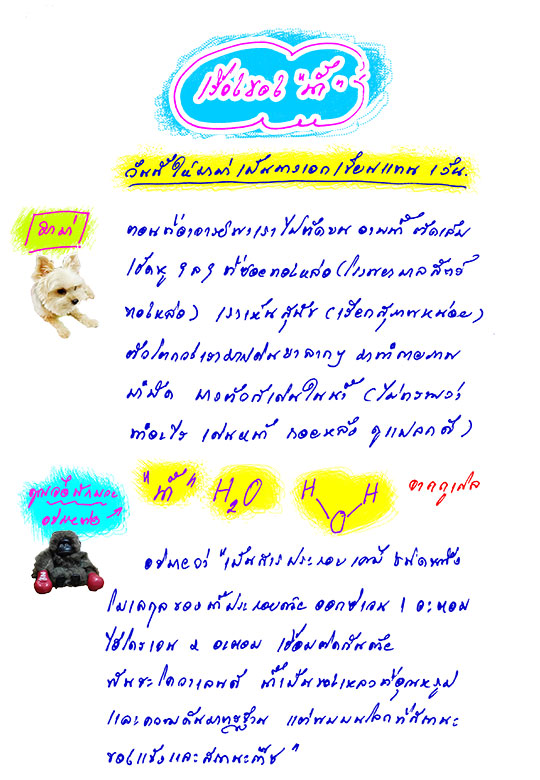 เรื่องของ "น้ำ"
วันนี้ให้มาม่าเป็นนางเอกเขียนแทน 1 วัน.
มาม่า!
ตอนที่อาจารย์พาเราไปตัดขน อาบน้ำ ตัดเล็บ
เช็ดหู ที่ซอยทองหล่อ (โรงพยาบาลสัตว์
ทองหล่อ) เราเห็นสุนัข (เรียกสุภาพหน่อย)
ตัวโตกว่าเรามากเดิน มาทำกายภาพ
บำบัด บางตัวก็เดินในน้ำ (ไม่ทราบว่า
ทำอะไร เดินหน้า ถอยหลัง ดูแปลกดี)
"น้ำ" H2O
H H
O
จากกูเกิล
"เป็นสารประกอบเคมีชนิดหนึ่ง
โมเลกุลของน้ำประกอบด้วย ออกซิเจน 1 อะตอม
ไฮโดรเจน 2 อะตอม เชื่อมติดกันด้วย
พันธะโควาเลนต์ น้ำเป็นของเหลวที่อุณหภูมิ
และความดันมาตรฐาน แต่พบบนโลกที่สถานะ
ของแข็งและสถานะก๊าซ"